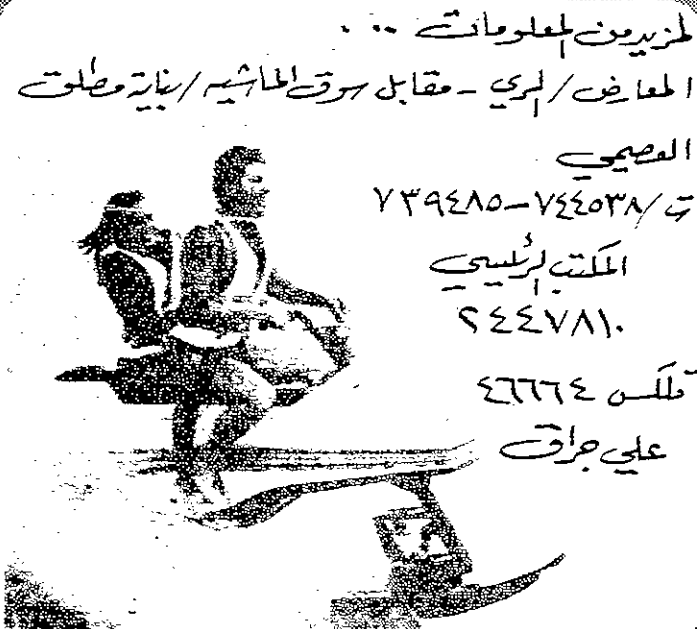 لمزيد من المعلومات ...
المعارض / الري - مقابل سوق الماشيه / بناية مطلق
العصيمي
ت / ٧٤٤٥٣٨ - ٧٣٩٤٨٥
المكتب الرئيسي
٢٤٤٧٨١٠
تلكس ٤٦٦٦٤
علي جراق